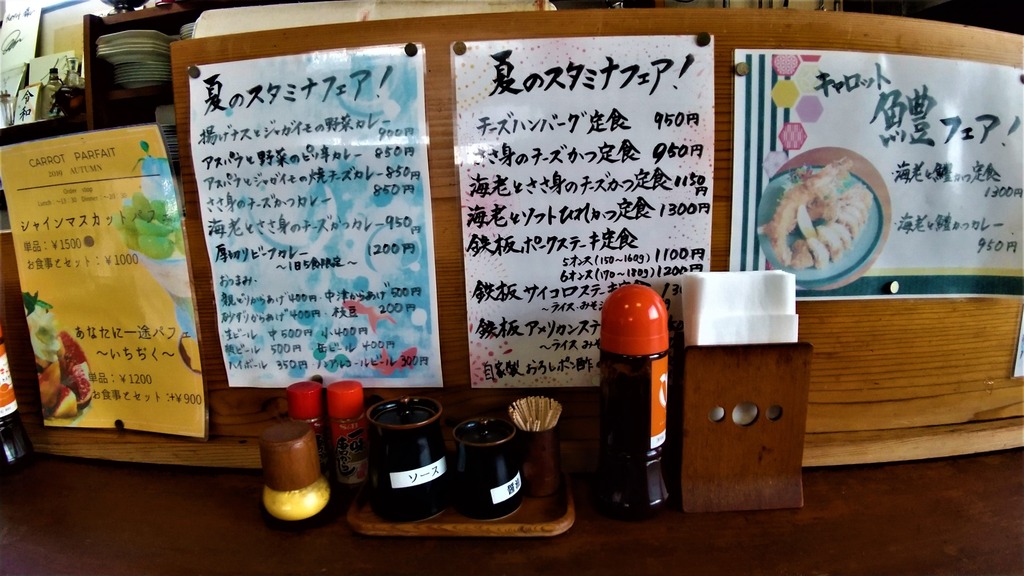 令和
CARROT PARFAIT
2019 AUTUMN
シャインマスカットパフェ
単品：￥1500
お食事とセット：￥1000
あなたに一途パフェ
～いちぢく～
単品：￥1200
お食事とセット：+￥900
夏のスタミナフェア！
揚げナスとジャガイモの野菜カレー
900円
アスパラと野菜のピリ辛カレー 850円
アスパラとジャガイモの焼チーズカレー 850円
ささ身のチーズかつカレー 850円
海老とささ身のチーズかつカレー 950円
厚切りビーフカレー 1200円
～1日5食限定～
おつまみ
親どりからあげ 400円 中津からあげ 500円
砂ずりからあげ 400円 枝豆 200円
生ビール 中500円 小400円
瓶ビール 500円 缶ビール 400円
ハイボール 350円 ノンアルコールビール 300円
夏のスタミナフェア！
チーズハンバーグ定食 950円
ささ身のチーズかつ定食 950円
海老とささ身のチーズかつ定食 1150円
海老とソフトひれかつ定食 1300円
鉄板ポークステーキ定食
5オンス(150～160g) 1100円
6オンス(170～180g) 1200
鉄板サイコロステーキ定
～ライス
鉄板アメリカンステ
～ライス
自家製おろしポン酢
キャロット
鱧フェア！
海老と鱧かつ定食
1300円
海老と鱧かつカレー
950円
ソース